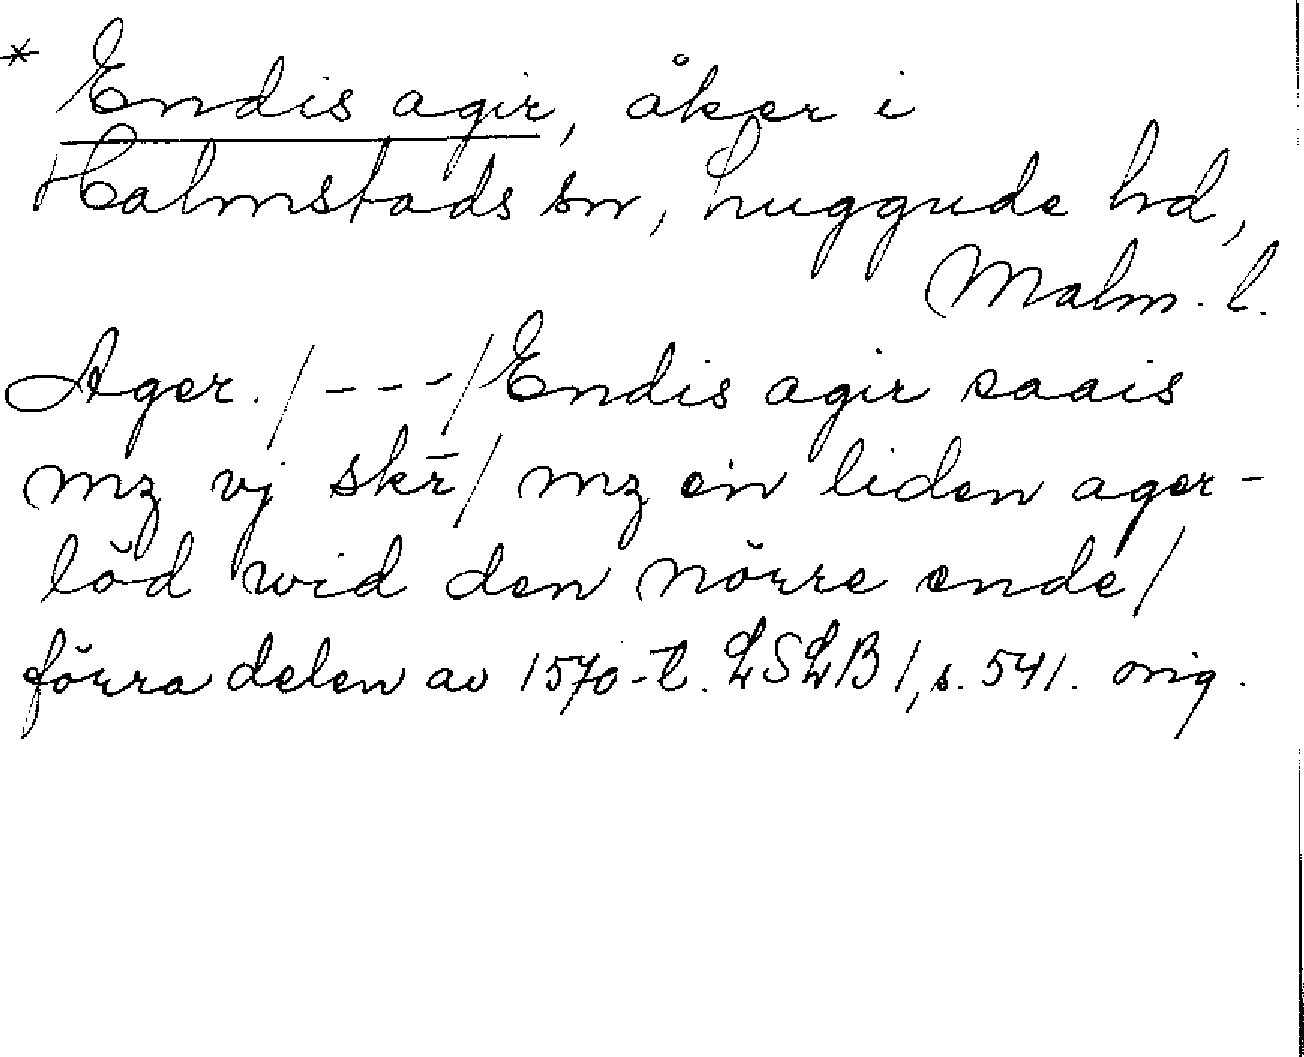 * Endis agir, åker i
Halmstads sn, Luggude hd,
Malm. l.
Ager. / --- / Endis agir saais
mz vj skr̄ / mz en liden ager-
löd wid den nörre ende /
förra delen av 1570-t. LSLB 1, s. 541. orig.